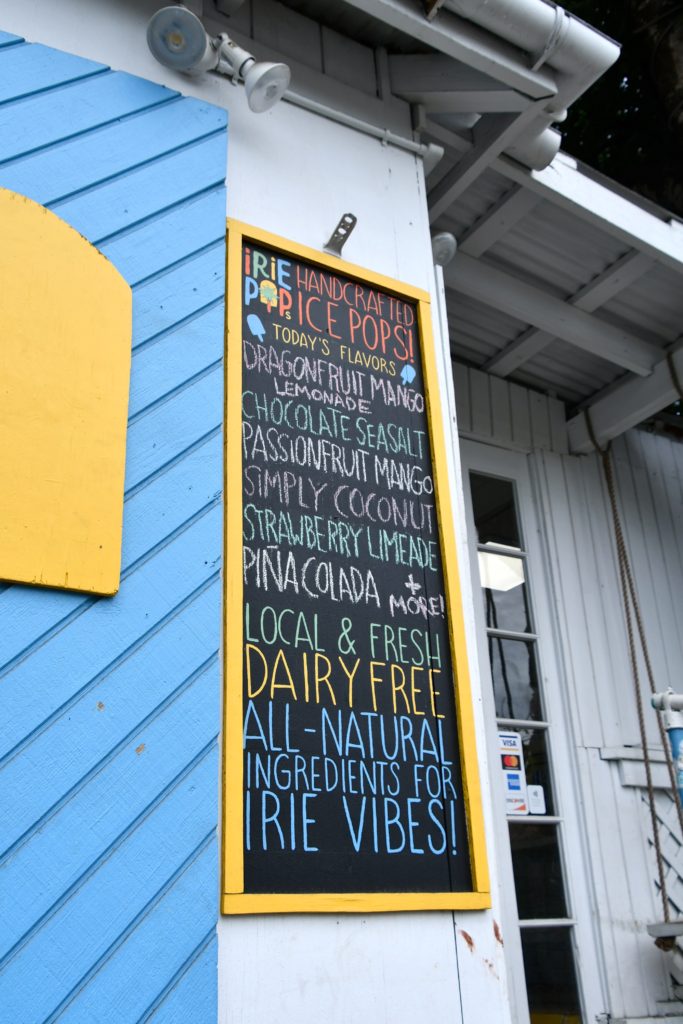 iRiE HANDCRAFTED
POPs ICE POPS!
TODAY'S FLAVORS
DRAGONFRUIT MANGO
LEMONADE
CHOCOLATE SEASALT
PASSIONFRUIT MANGO
SIMPLY COCONUT
STRAWBERRY LIMEADE
PIÑA COLADA + MORE!
LOCAL & FRESH
DAIRY FREE
ALL-NATURAL
INGREDIENTS FOR
IRIE VIBES!
VISA
DISCOVER